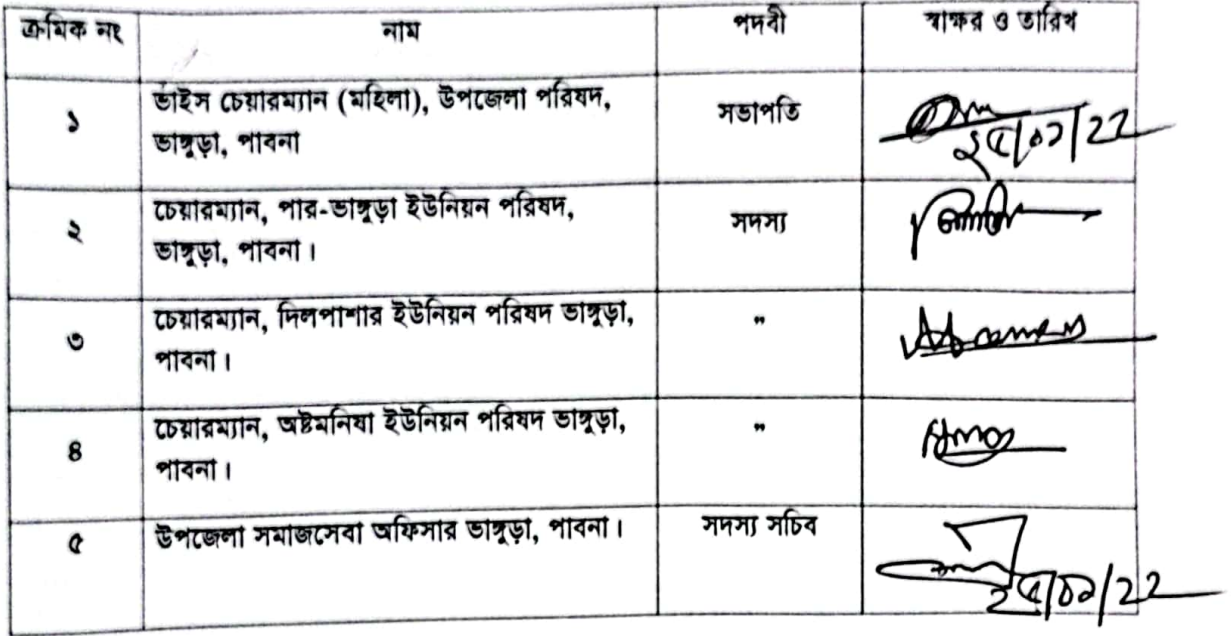 ক্রমিক নং নাম পদবী স্বাক্ষর ও তারিখ
১ ভাইস চেয়ারম্যান (মহিলা), উপজেলা পরিষদ, সভাপতি
ভাঙ্গুড়া, পাবনা
২৫/০১/22
২ চেয়ারম্যান, পার-ভাঙ্গুড়া ইউনিয়ন পরিষদ, সদস্য
ভাঙ্গুড়া, পাবনা।
৩ চেয়ারম্যান, দিলপাশার ইউনিয়ন পরিষদ ভাঙ্গুড়া, "
পাবনা।
৪ চেয়ারম্যান, অষ্টমনিষা ইউনিয়ন পরিষদ ভাঙ্গুড়া, "
পাবনা।
৫ উপজেলা সমাজসেবা অফিসার ভাঙ্গুড়া, পাবনা। সদস্য সচিব
২৫/০১/22